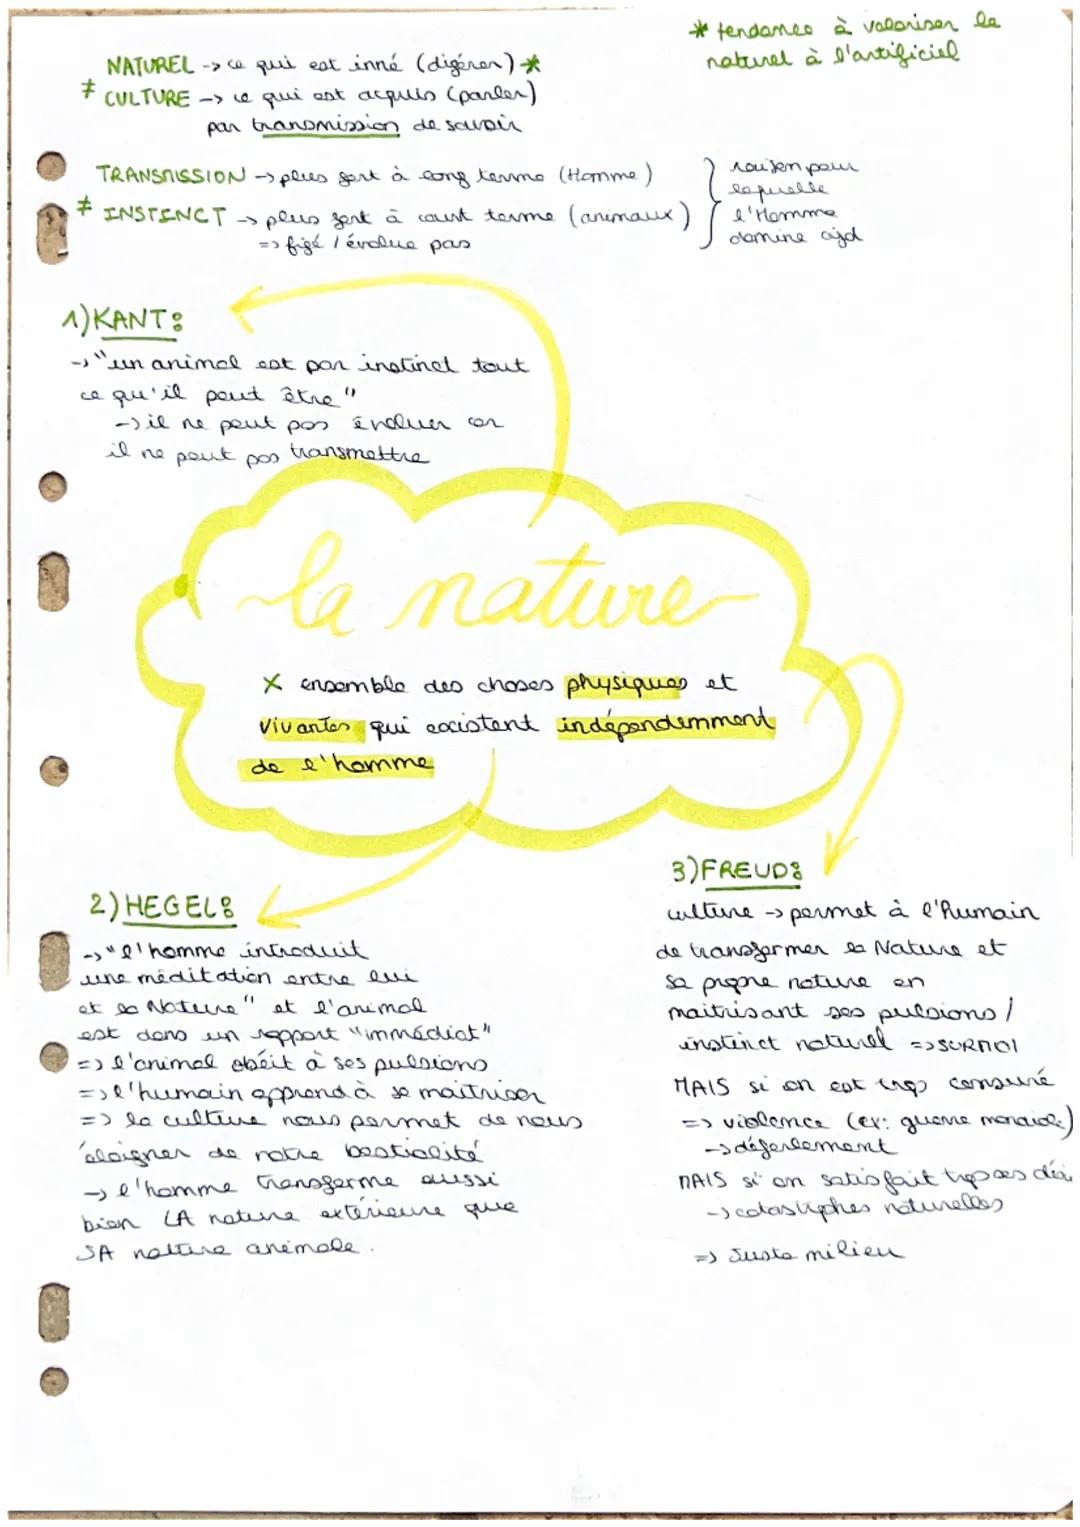 * tendance à valoriser le
naturel à l'artificiel
NATUREL -> ce qui est inné (digérer) *
≠ CULTURE -> ce qui est acquis (parler)
par transmission de savoir
TRANSMISSION -> plus fort à long terme (Homme)
≠ INSTINCT -> plus fort à court terme (animaux)
=> figé / évolue pas
raison pour
laquelle
l'Homme
domine ajd
1) KANT :
-> "un animal est par instinct tout
ce qu'il peut être"
-> il ne peut pas évoluer car
il ne peut pas transmettre
la nature
X ensemble des choses physiques et
vivantes qui existent indépendemment
de l'homme
2) HEGEL :
-> "l'homme introduit
une méditation entre lui
et la Nature" et l'animal
est dans un rapport "immédiat"
=> l'animal obéit à ses pulsions
=> l'humain apprend à se maitriser
=> la culture nous permet de nous
éloigner de notre bestialité
-> l'homme transforme aussi
bien LA nature extérieure que
SA nature animale.
3) FREUD :
culture -> permet à l'humain
de transformer la Nature et
sa propre nature en
maitrisant ses pulsions /
instinct naturel => SURMOI
MAIS si on est trop censuré
=> violence (ex: guerre mondiale)
-> déferlement
MAIS si on satisfait trop ses
-> catastrophes naturelles
=> Juste milieu